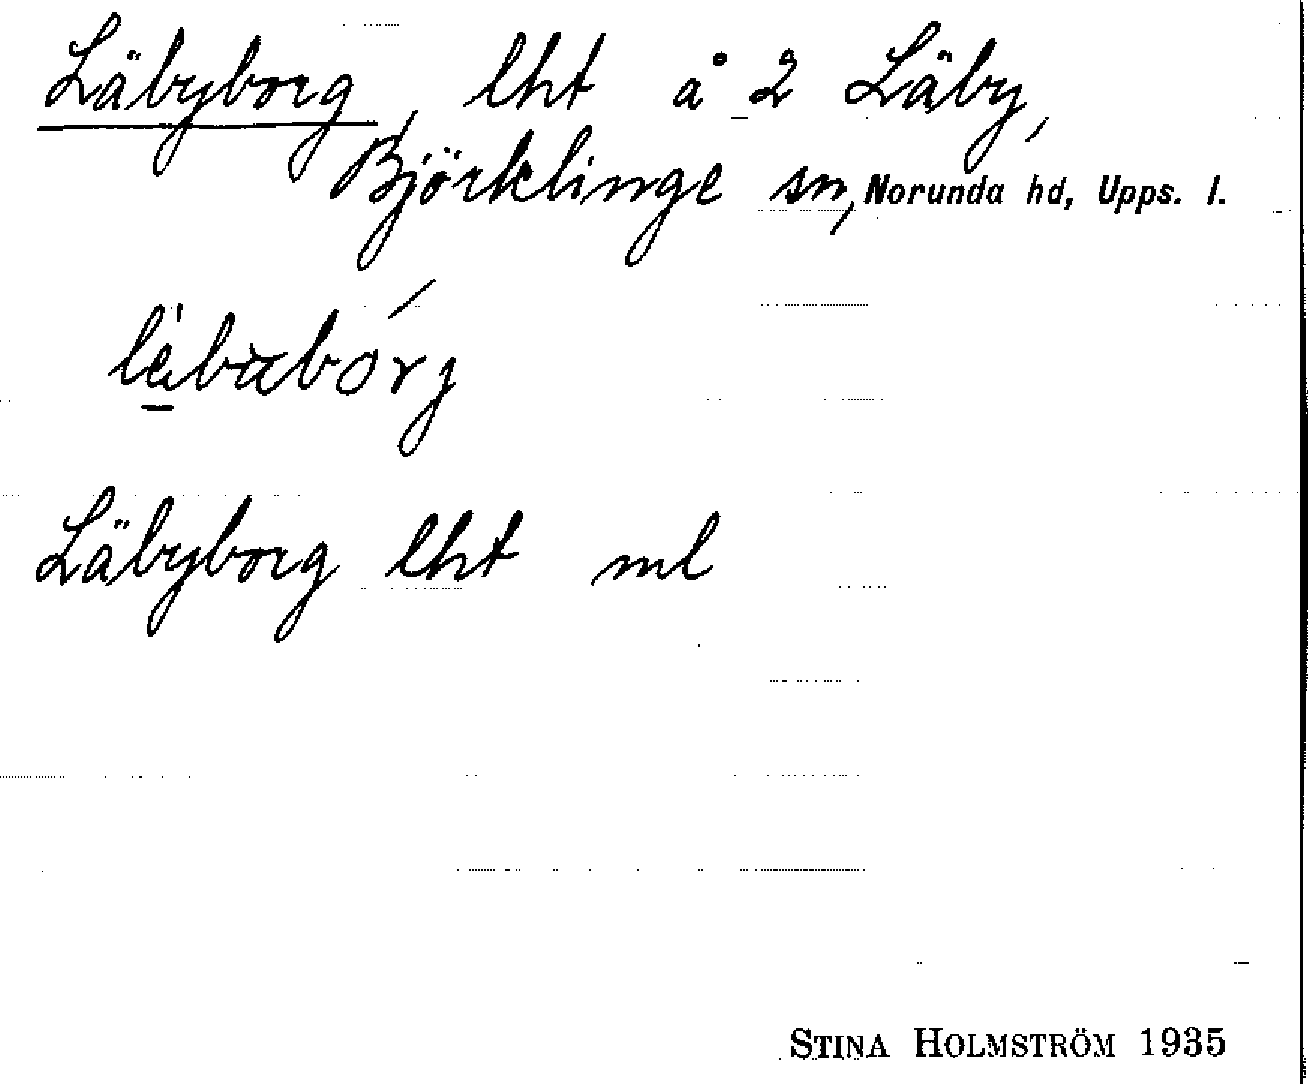 Läbyborg, lht å 2 Läby,
Björklinge sn, Norunda hd, Upps. l.
Läbyborg lht ml
STINA HOLMSTRÖM 1935